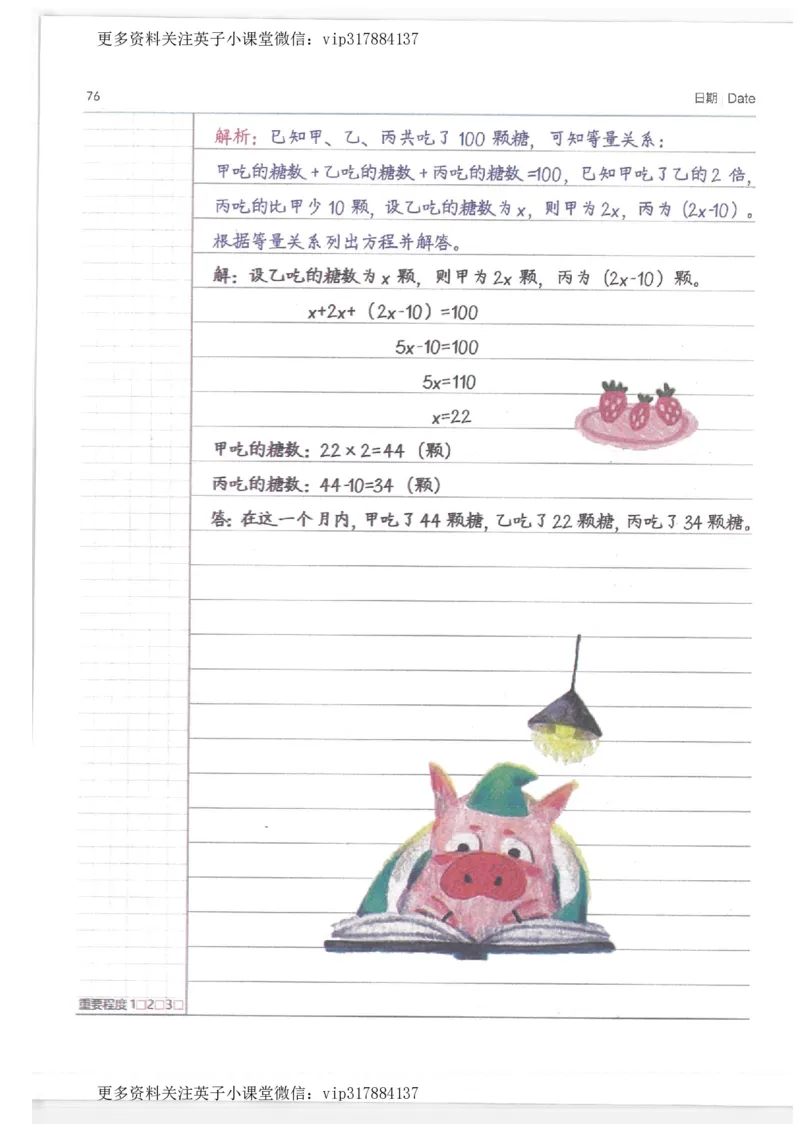 更多资料关注英子小课堂微信：vip317884137
76
日期 Date
解析：已知甲、乙、丙共吃了 100 颗糖，可知等量关系：
甲吃的糖数+乙吃的糖数+丙吃的糖数=100，已知甲吃了乙的2 倍，
丙吃的比甲少 10 颗，设乙吃的糖数为x，则甲为2x，丙为（2x-10）。
根据等量关系列出方程并解答。
解：设乙吃的糖数为 x 颗，则甲为 2x 颗，丙为（2x-10）颗。
x+2x+（2x-10）=100
5x-10=100
5x=110
x=22
甲吃的糖数：22×2=44（颗）
丙吃的糖数：44-10=34（颗）
答：在这一个月内，甲吃了44颗糖，乙吃了22颗糖，丙吃了34颗糖。
重要程度 1□2□3□
更多资料关注英子小课堂微信：vip317884137